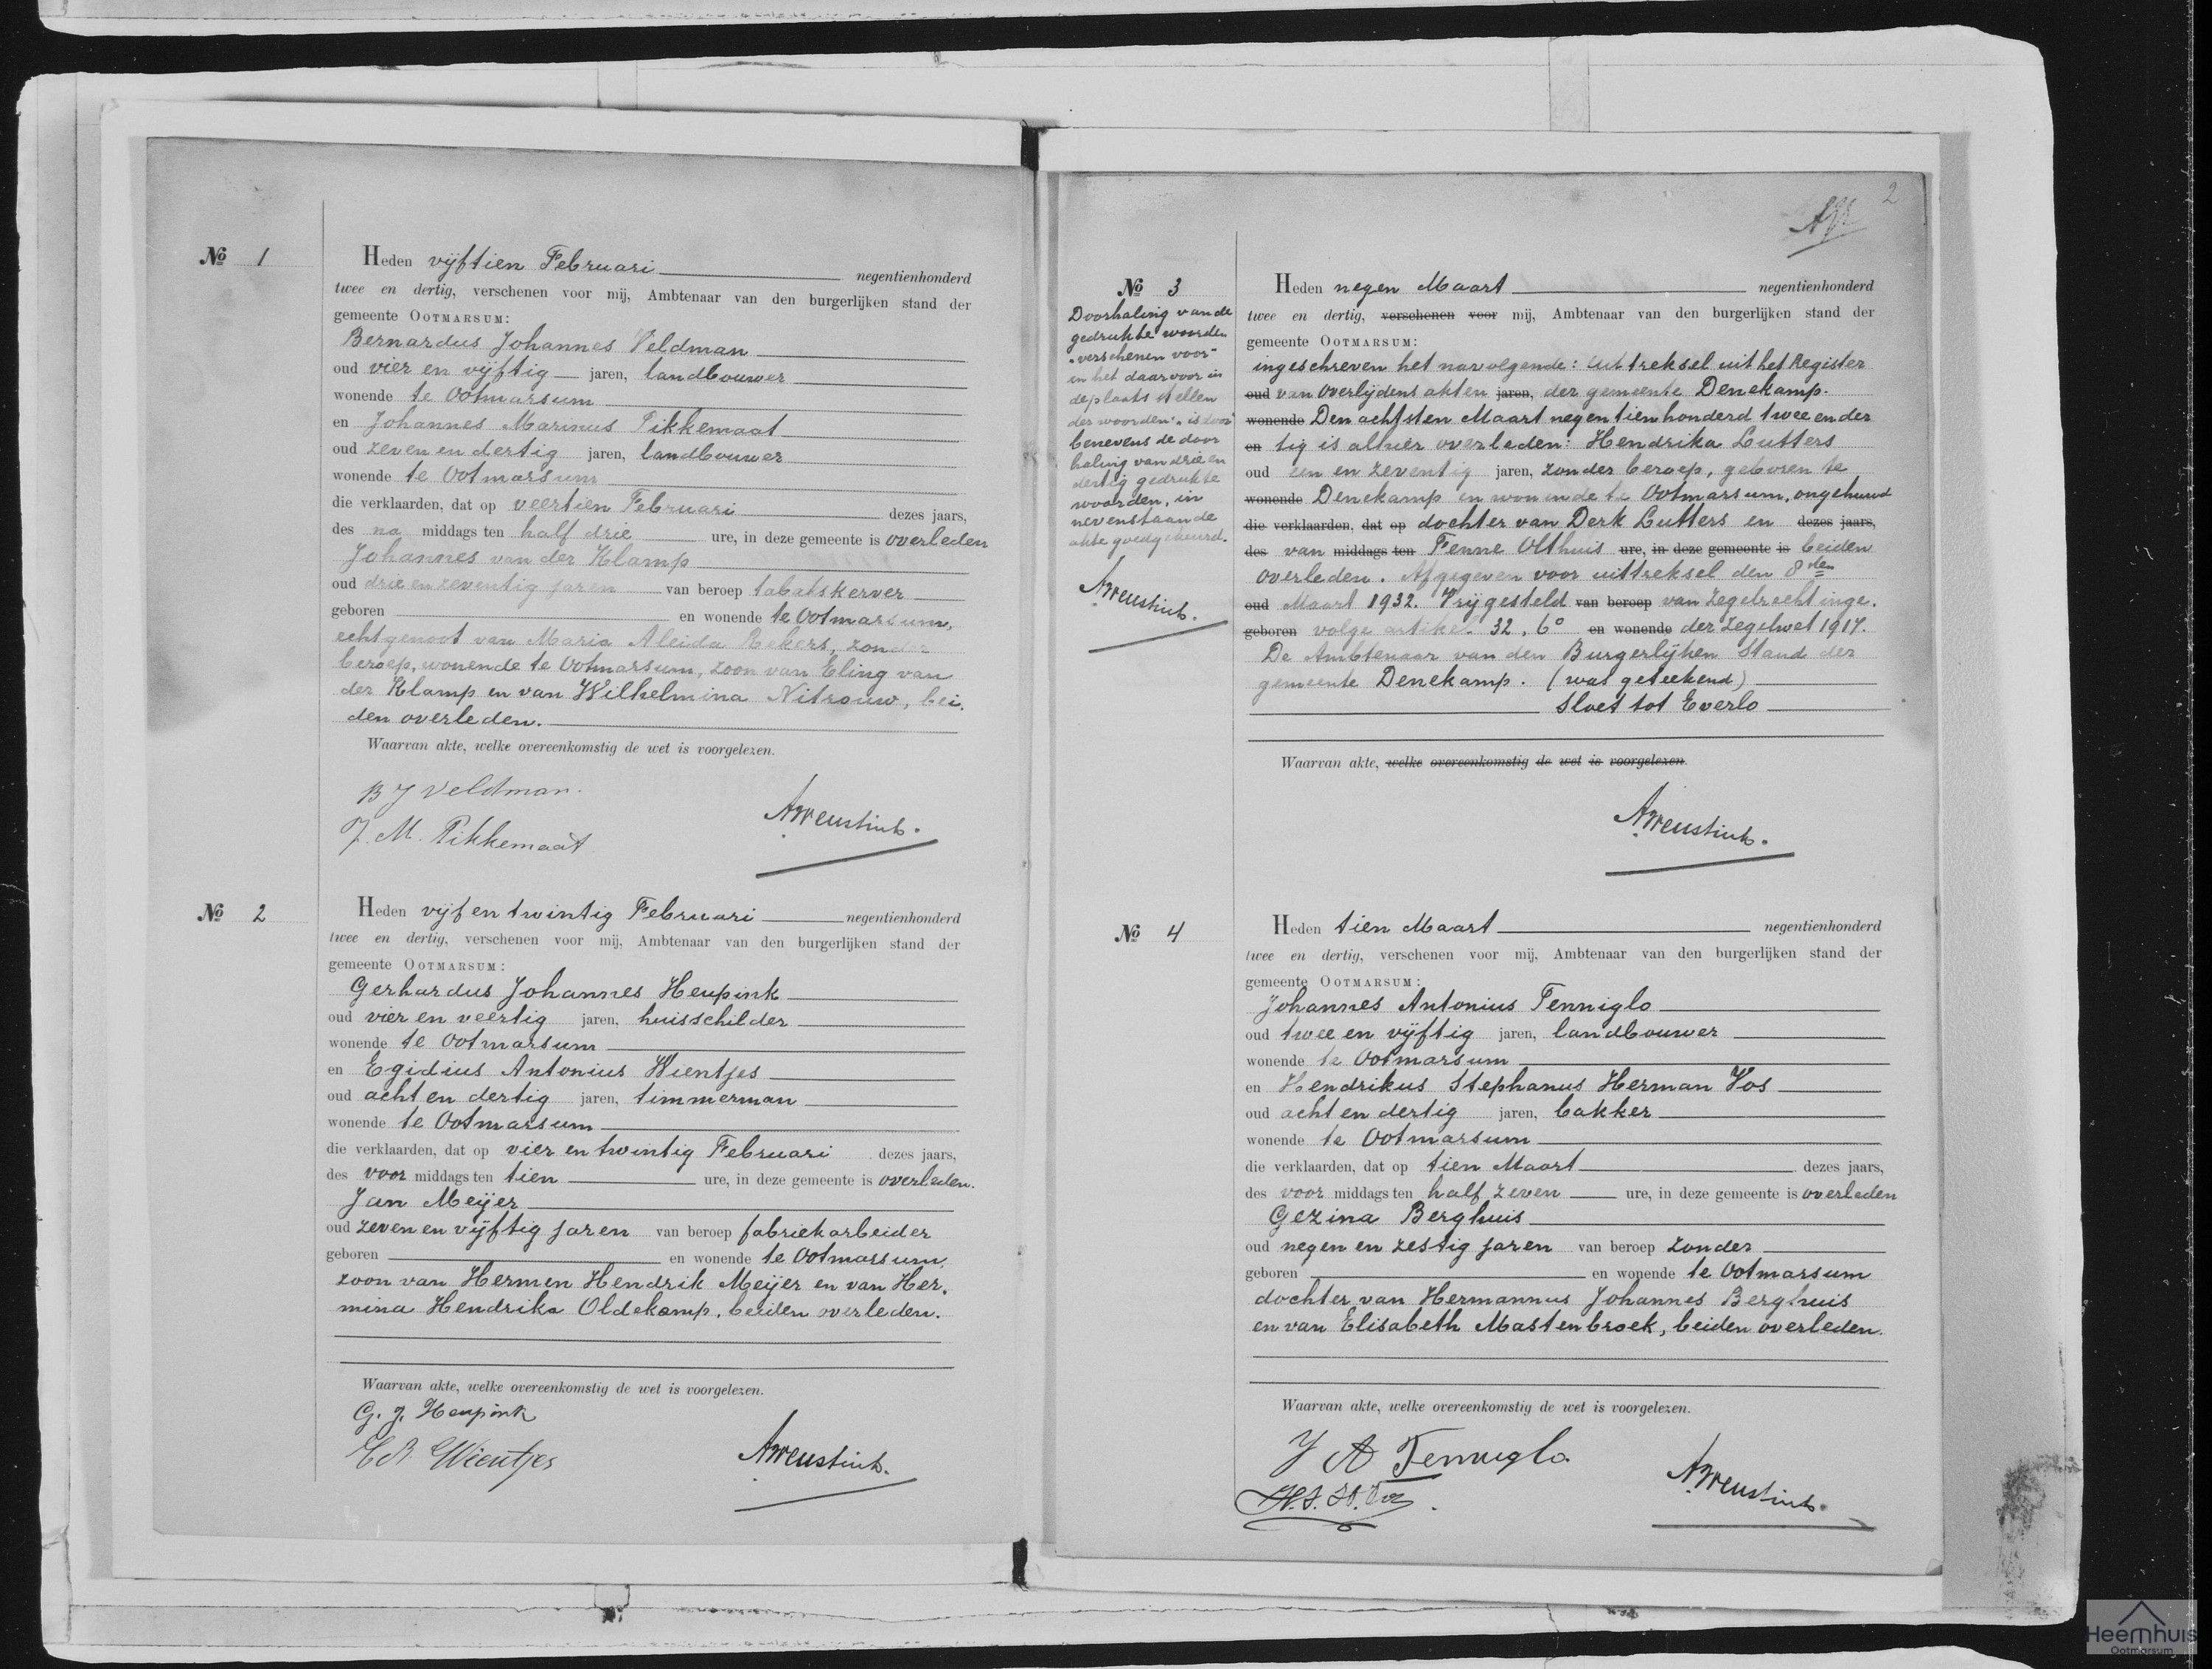 No 1
Heden vijftien Februari negentienhonderd
twee en dertig, verschenen voor mij, Ambtenaar van den burgerlijken stand der
gemeente OOTMARSUM:
Bernardus Johannes Veldman
oud vier en vijftig jaren, landbouwer
wonende te Ootmarsum
en Johannes Marinus Pikkemaat
oud zeven en dertig jaren, landbouwer
wonende te Ootmarsum
die verklaarden, dat op veertien Februari dezes jaars,
des na middags ten half drie ure, in deze gemeente is overleden
Johannes van der Klamp
oud drie en zeventig jaren van beroep tabakskerver
geboren en wonende te Ootmarsum,
echtgenoot van Maria Aleida Rekers, zonder
beroep, wonende te Ootmarsum, zoon van Eling van
der Klamp en van Wilhelmina Nitrouw, bei.
den overleden.
Waarvan akte, welke overeenkomstig de wet is voorgelezen.
B J Veldman.
J. M. Pikkemaat
No 2
Heden vijf en twintig Februari negentienhonderd
twee en dertig, verschenen voor mij, Ambtenaar van den burgerlijken stand der
gemeente OOTMARSUM:
Gerhardus Johannes Heupink
oud vier en veertig jaren, huisschilder
wonende te Ootmarsum
en Egidius Antonius Wientjes
oud acht en dertig jaren, timmerman
wonende te Ootmarsum
die verklaarden, dat op vier en twintig Februari dezes jaars,
des voor middags ten tien ure, in deze gemeente is overleden.
Jan Meijer
oud zeven en vijftig jaren van beroep fabriekarbeider
geboren en wonende te Ootmarsum,
zoon van Hermen Hendrik Meijer en van Her.
mina Hendrika Oldekamp, beiden overleden.
Waarvan akte, welke overeenkomstig de wet is voorgelezen.
G. J. Heupink
E A Wientjes
2
No 3
Doorhaling van de
gedrukte woorden
"verschenen voor"
en het daarvoor in
de plaats stellen
der woorden "is door"
benevens de door
haling van drie en
dertig gedrukte
woorden, in
nevenstaande
akte goedgekeurd.
Heden negen Maart negentienhonderd
twee en dertig, verschenen voor mij, Ambtenaar van den burgerlijken stand der
gemeente OOTMARSUM:
ingeschreven het navolgende: Uittreksel uit het Register
oud van overlijdens akten jaren, der gemeente Denekamp.
wonende Den achtsten Maart negentienhonderd twee en der
en tig is alhier overleden: Hendrika Lutters
oud een en zeventig jaren, zonder beroep, geboren te
wonende Denekamp en wonende te Ootmarsum, ongehuwd
die verklaarden, dat op dochter van Derk Lutters en dezes jaars,
des van middags ten Fenne Olthuis ure, in deze gemeente is beiden
overleden. Afgegeven voor uittreksel den 8sten
oud Maart 1932. Vrijgesteld van beroep van zegelrecht inge.
geboren volge artikel 32, 6o en wonende der Zegelwet 1917.
De Ambtenaar van den Burgerlijken Stand der
gemeente Denekamp. (was geteekend)
Sloet tot Everlo
Waarvan akte, welke overeenkomstig de wet is voorgelezen.
No 4
Heden tien Maart negentienhonderd
twee en dertig, verschenen voor mij, Ambtenaar van den burgerlijken stand der
gemeente OOTMARSUM:
Johannes Antonius Tenniglo
oud twee en vijftig jaren, landbouwer
wonende te Ootmarsum
en Hendrikus Stephanus Herman Vos
oud acht en dertig jaren, bakker
wonende te Ootmarsum
die verklaarden, dat op tien Maart dezes jaars,
des voor middags ten half zeven ure, in deze gemeente is overleden
Gezina Berghuis
oud negen en zestig jaren van beroep zonder
geboren en wonende te Ootmarsum
dochter van Hermannus Johannes Berghuis
en van Elisabeth Mastenbroek, beiden overleden.
Waarvan akte, welke overeenkomstig de wet is voorgelezen.
J A Tenniglo
H. S. H. Vos
Heemhuis
Ootmarsum